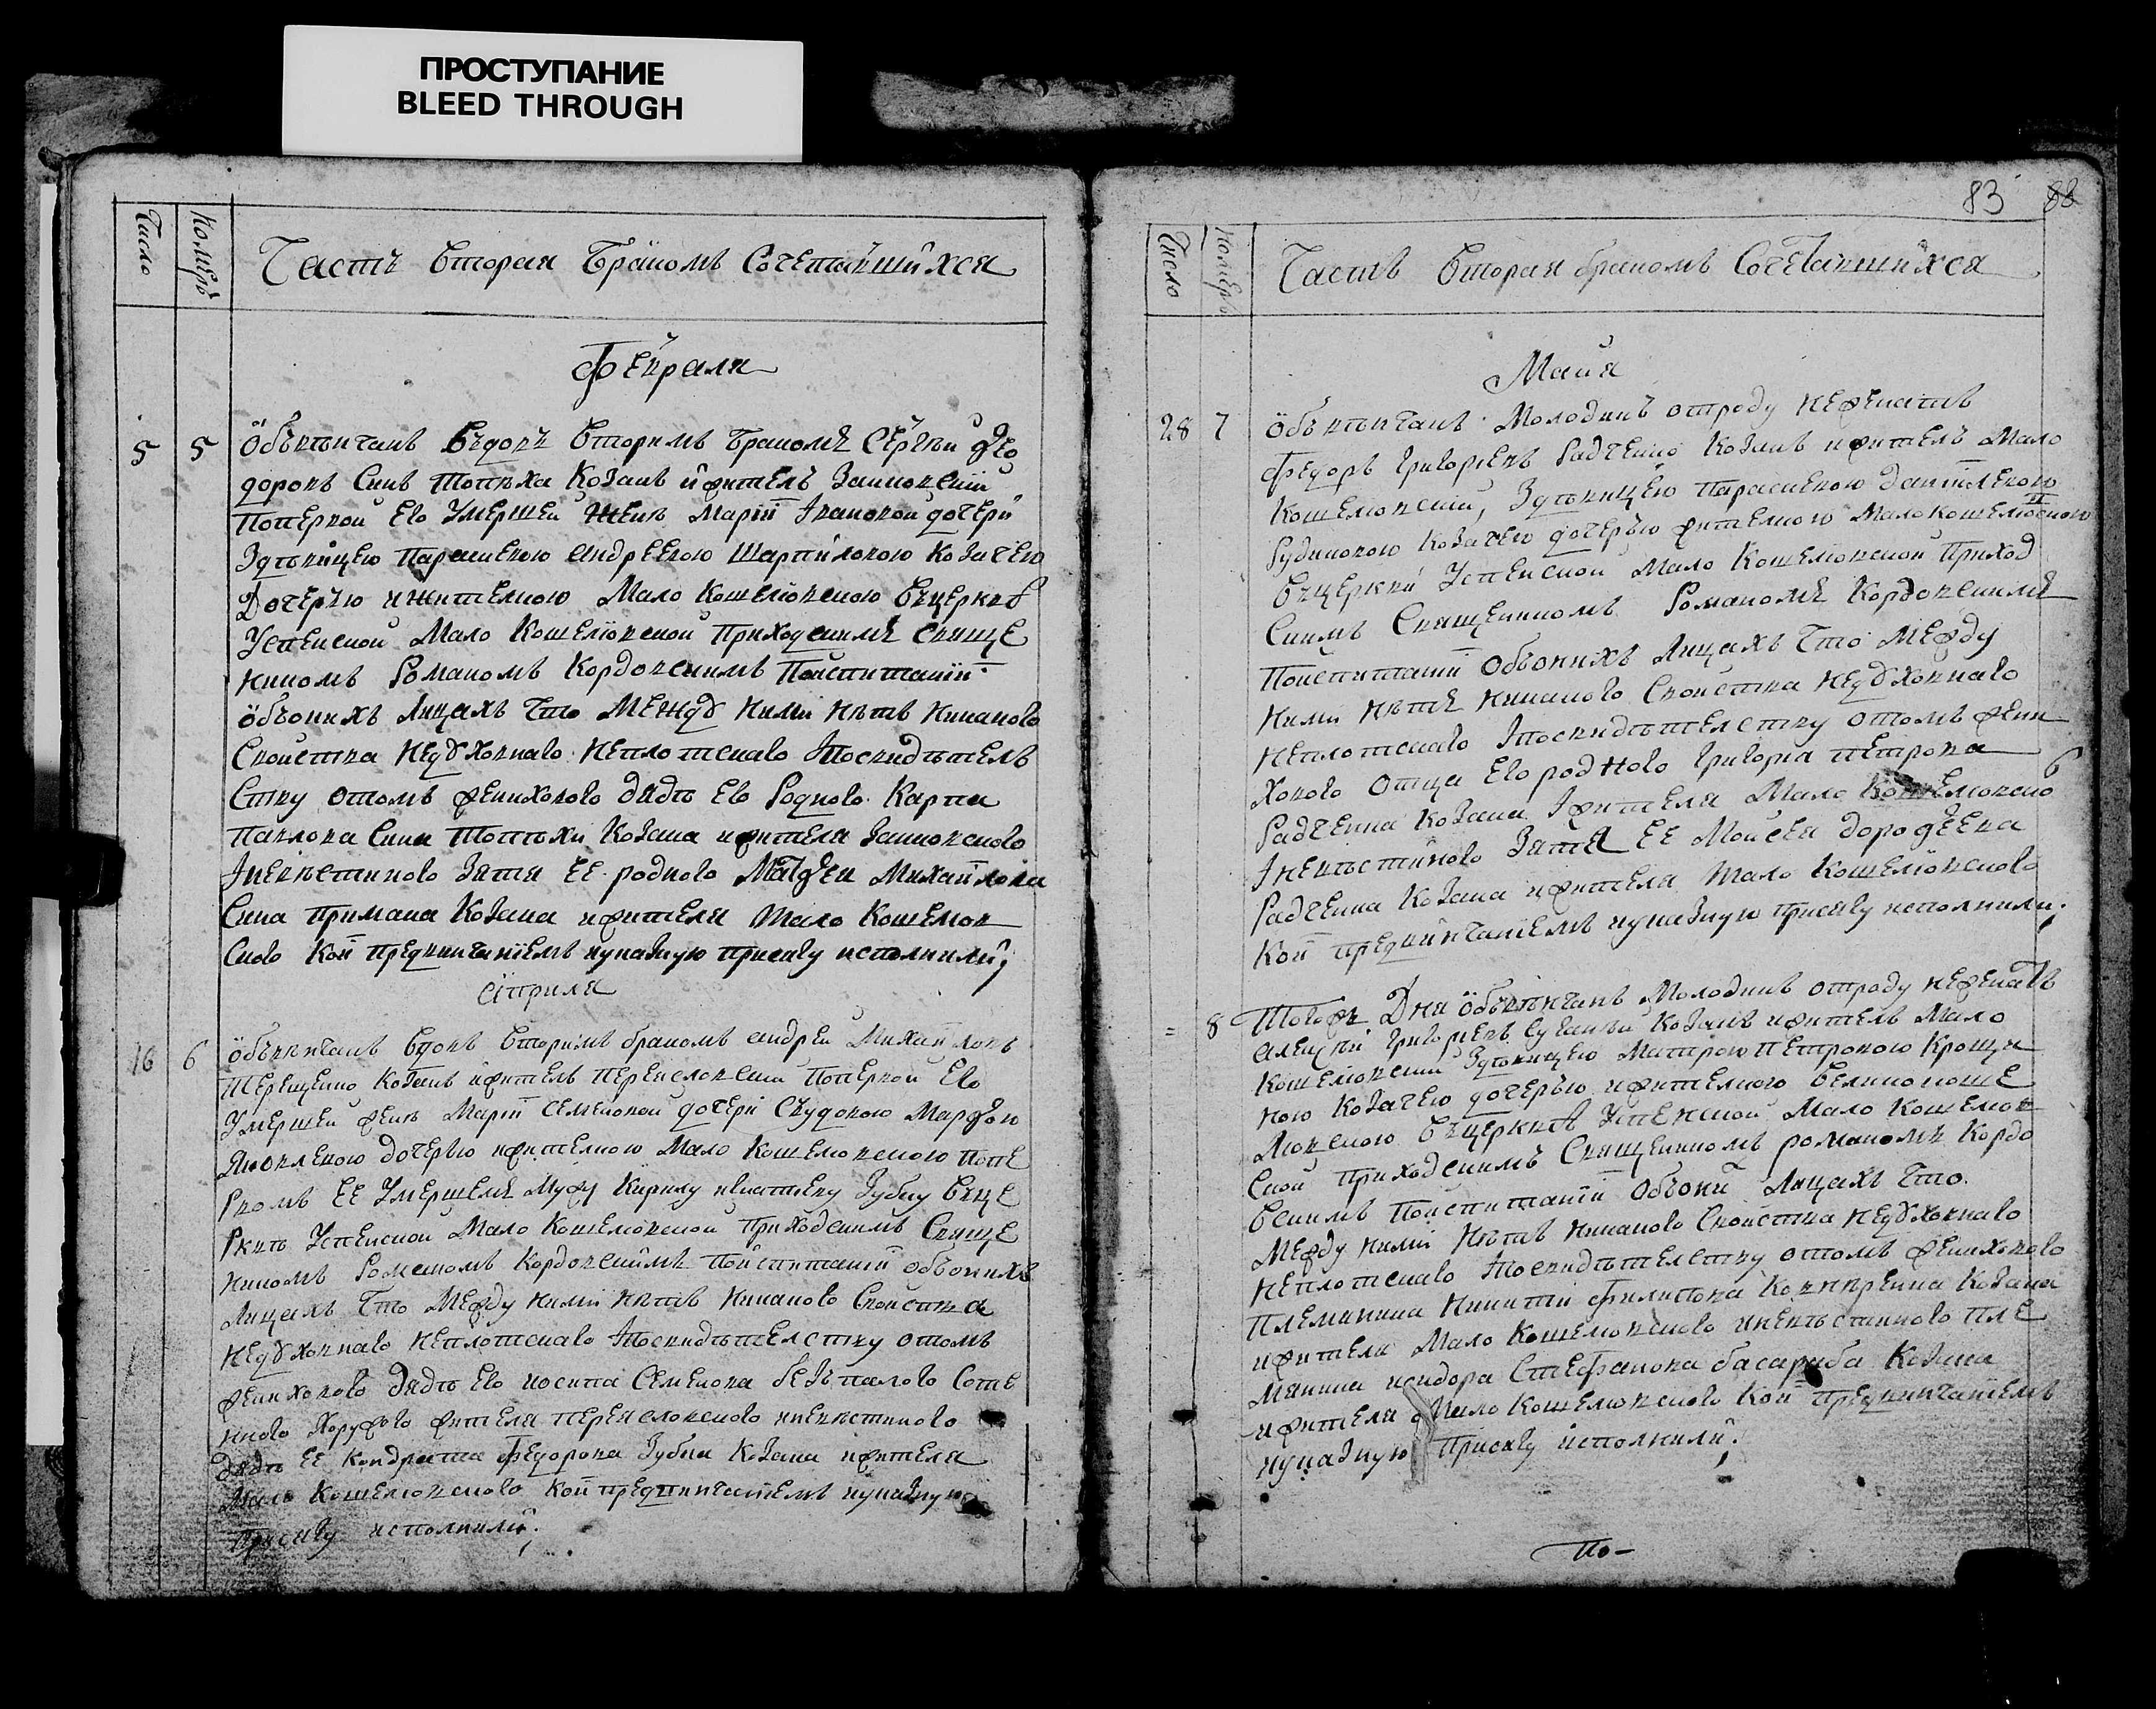 ПРОСТУПАНИЕ
BLEED THROUGH
Число
Номеръ
Часть вторая бракомъ сочетавшихся
Февраля
5 5 Объвѣнчанъ въдовъ вторимъ бракомъ Сергѣй Фео
доровъ синъ Топѣха козакъ и житель
Поперкой его умершей женѣ Маріи Івановой дочери
здѣвицею Параскевою Андреевою Шарпиловою козачею
дочерью и жителкою Мало Кошелювскою въцерквѣ
Успенской Мало Кошелювской приходскимъ свяще
никомъ Романомъ Кордовскимъ поиспитаніи
объонихъ лицахъ что между ними нѣтъ никакого
свойства недуховнаго неплотскаго Іпосвидѣтель
ству отомъ жениховово дядѣ его родного Карпа
Павлова сина Топѣхи козака и жителя
Іневѣстиного зятя ее родного Матфея Михайлова
сина Примака козака и жителя Мало Кошелюв
ского кои предвинчаніемъ иуказную присягу исполнили;
Априля
16 6 Объвѣнчанъ вдовъ вторимъ бракомъ Андрей Михайловъ
Терещенко козакъ и житель Переясловскій поперкой его
умершей женѣ Маріи Семеновой дочери свудовою Марфою
Яковлевою дочерью и жителкою Мало Кошелювскою попе
рвомъ ее умершемъ мужу Кирилу Зубку въце
рквѣ Успенской Мало Кошелювской приходскимъ свяще
никомъ Романомъ Кордовскимъ поиспитаніи объонихъ
лицахъ что между ними нѣтъ никакого свойства
недуховнаго неплотскаго Іпосвидѣтелству отомъ
жениховово дядѣ его Иосипа Семенова Безпалого сотѣ
нного хоружого жителя Переясловского иневѣстиного
дядѣ ее Кондрата Федорова Зубка козака и жителя
Мало Кошелювского кои предвинчаніемъ иуказную
присягу исполнили;
83 88
Число
Номеръ
Часть вторая бракомъ сочетавшихся
Майя
28 7 Объвѣнчанъ молодикъ отроду неженатъ
Федоръ Григориевъ Радченко козакъ и житель Мало
Кошелювский, здѣвицею Параскевою Даниилевою
Рудиковою козачею дочерью жителкою Малокошелювскою
въцеркви Успенской Мало Кошелювской приход
скимъ священникомъ Романомъ Кордовскимъ
поиспитаніи объонихъ лицахъ что между
ними нѣтъ никакого свойства недуховнаго
неплотскаго Іпосвидѣтелству отомъ жени
хового отца его родного Григориа Петрова
Радченка козака Іжителя Мало Кошелювского
Іневѣстиного зятя ее Моисея Дорофеева
Радченка козака и жителя Мало Кошелювского
кои предвинчаніемъ иуказную присягу исполнили;
= 8 Тогожъ дня объвѣнчанъ молодикъ отроду неженатъ
Алексій Григориевъ козакъ и житель Мало
Кошелювский здѣвицею Матроною Петровою Кроци
ною козачею дочерью и жителкою Великокоше
лювскою въцерквѣ Успенской Мало Кошелюв
ской приходскимъ священникомъ Романомъ Кордо
вскимъ поиспитаніи объони лицахъ что
между ними нѣтъ никакого свойства недуховнаго
неплотскаго Іпосвидѣтелству отомъ жениховово
племяника Никити Филипова козака
и жителя Мало Кошелювского иневѣстиного пле
мяника Исидора Стефанова Басараба козака
и жителя Мало Кошелювского кои предвинчаніемъ
иуказную присягу исполнили;
По-